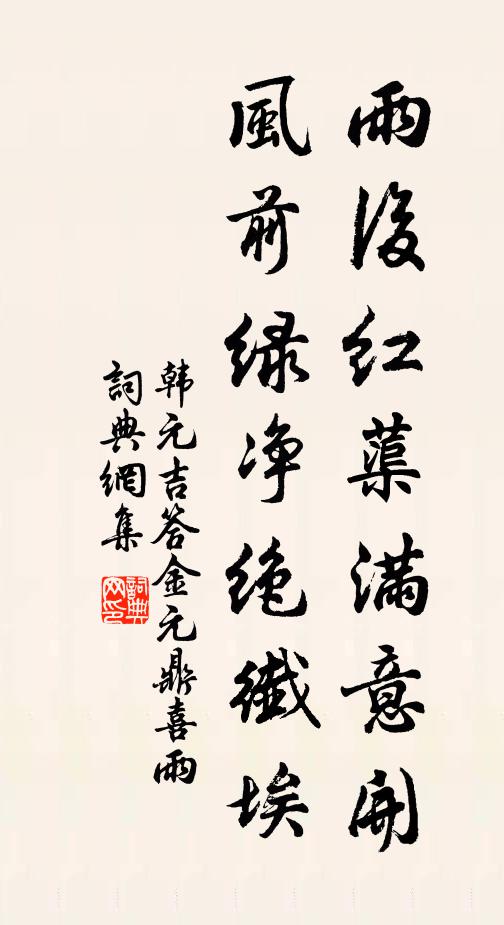 雨後红蕖满意開
風前绿净绝纖埃
韩元吉答金元鼎喜雨
詞典網集
詞典
网印